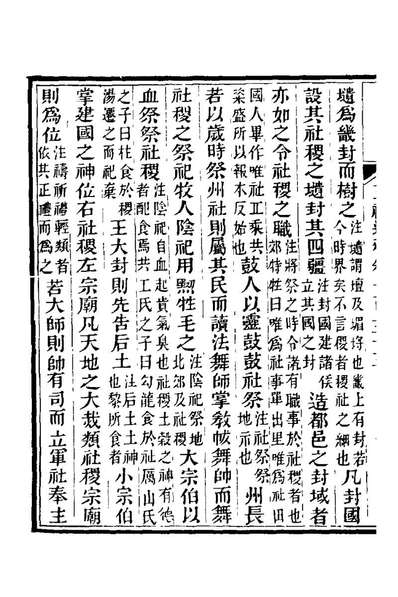 壝爲畿封而樹之注壝謂壇及堳埒也畿上有封若今時界矣不言稷者稷社之細也凡封國
設其社稷之壝封其四疆注封國建諸侯立其國之封造都邑之封域者
亦如之令社稷之職注將祭之時令諸有職事於社稷者也郊特牲曰唯爲社事單出里唯爲社田
國人畢作唯社丘乘共粢盛所以報本反始也鼓人以靈鼓鼓社祭注社祭祭地示也州長
若以歲時祭州社則屬其民而讀法舞師掌教帗舞帥而舞
社稷之祭祀牧人陰祀用黝牲毛之注陰祀祭地北郊及社稷大宗伯以
血祭祭社稷注陰祀自血起貴氣臭也社稷土穀之神有德者配食焉共工氏之子曰勾龍食於社厲山氏
之子曰柱食於稷湯遷之而祀棄王大封則先告后土注后土土神也黎所食者小宗伯
掌建國之神位右社稷左宗廟凡天地之大烖類社稷宗廟
則爲位注禱祈禮輕類者依其正禮而爲之若大師則帥有司而立軍社奉主